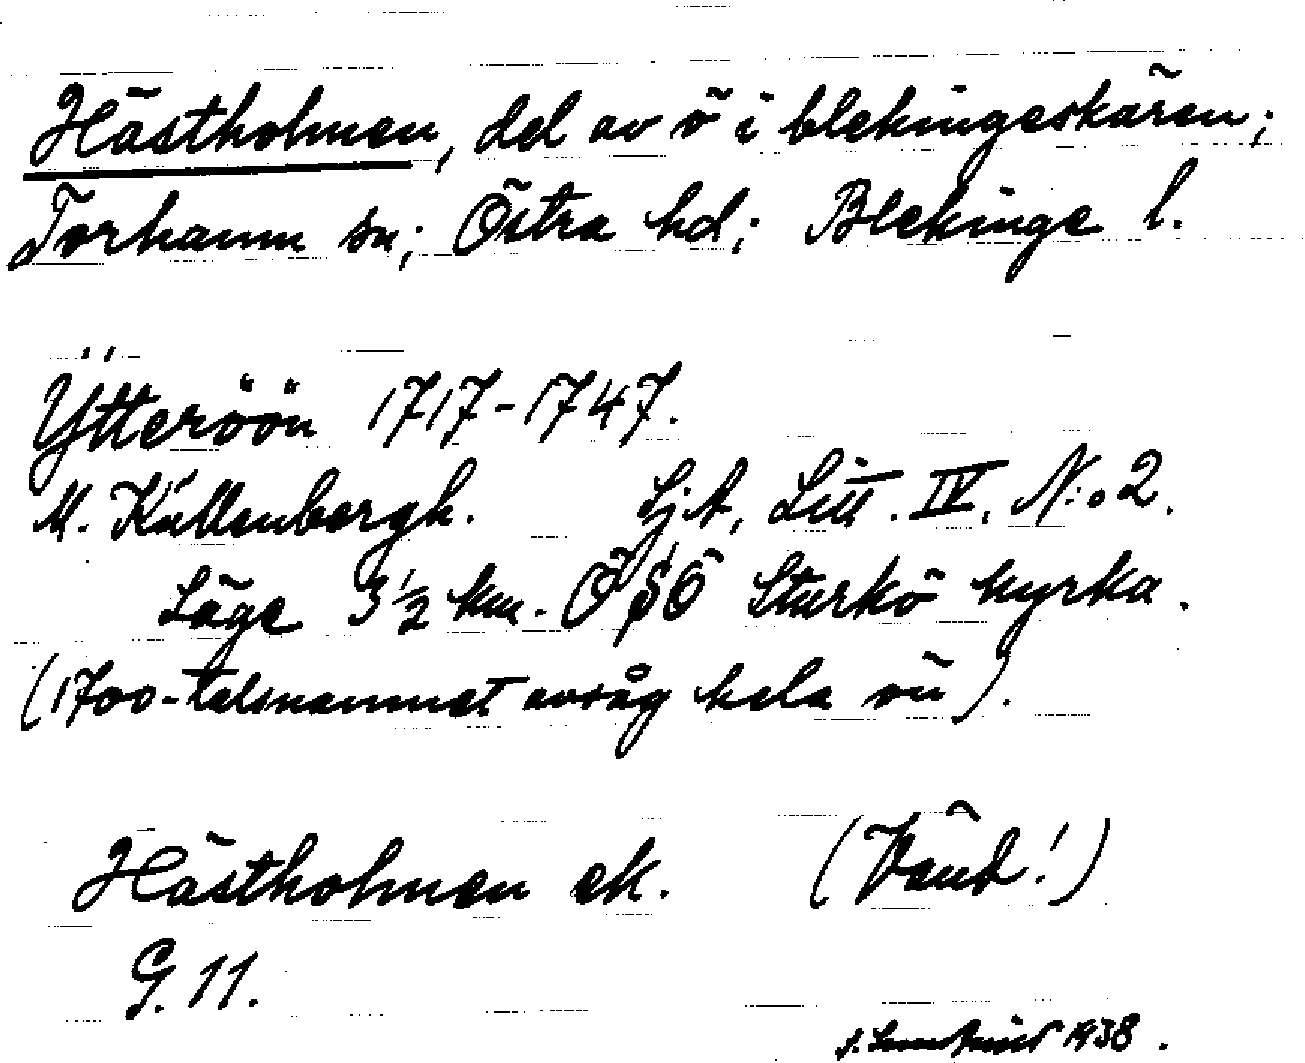 Hästholmen, del av ö i blekingeskären;
Torhamn sn; Östra hd; Blekinge l.
Ytteröön 1717-1747.
M. Kullenbergh. Lj.A, Litt. IV. N:o 2.
Läge 3 1/2 km. Ö Sturkö kyrka.
(1700-talsnamnet avsåg hela ön).
Hästholmen ek. (Vänd!)
G. 11.
1938.